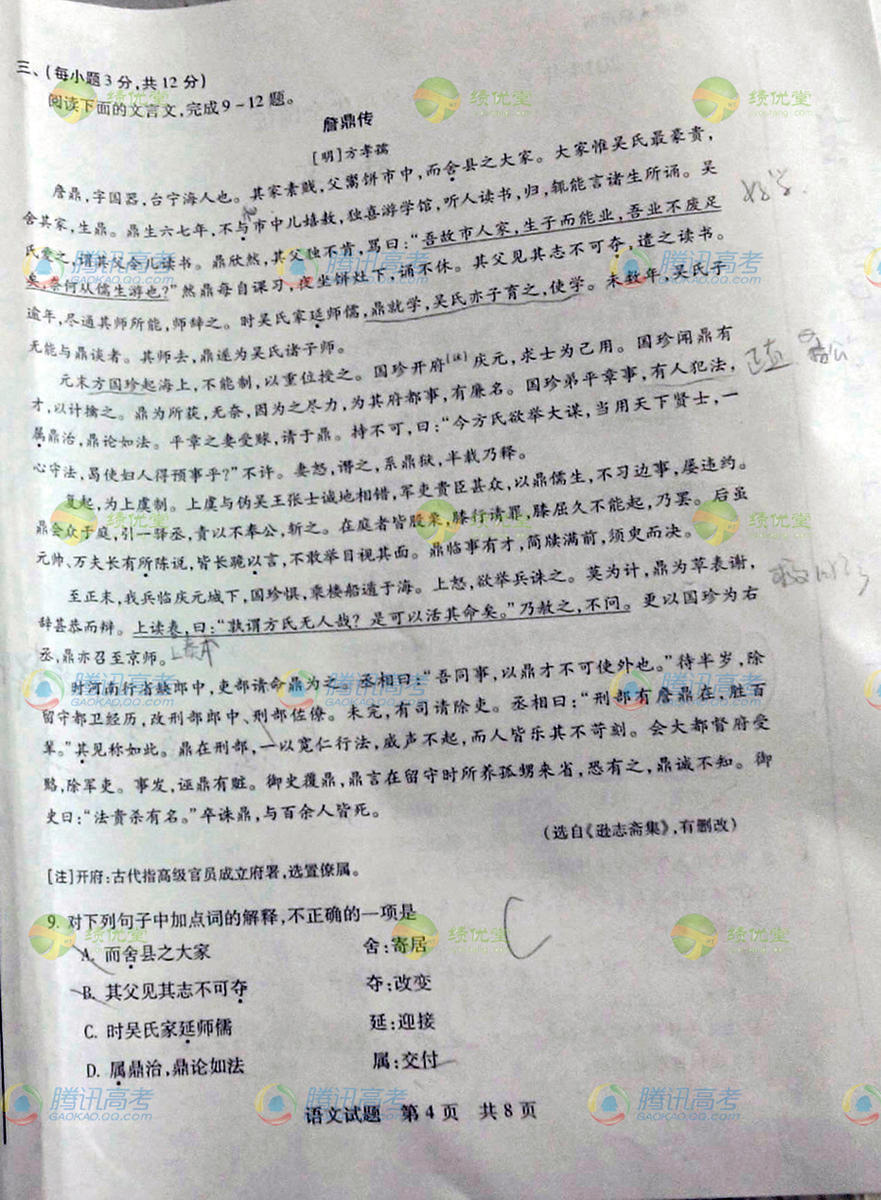 三、(每小题3分,共12分)
阅读下面的文言文,完成9~12题。
詹鼎传
[明]方孝孺
詹鼎,字国器,台宁海人也。其家素贱,父鬻饼市中,而舍县之大家。大家惟吴氏最豪贵,
舍其家,生鼎。鼎生六七年,不与市中儿嬉敖,独喜游学馆,听人读书,归,辄能言诸生所诵。吴
氏爱之,谓其父令儿读书。鼎欣然,其父独不肯,骂曰:“吾故市人家,生子而能业,吾业不废足
矣,奈何从儒生游也?”然鼎每自课习,夜坐饼灶下,诵不休。其父见其志不可夺,遣之读书。
逾年,尽通其师所能,师辞之。时吴氏家延师儒,鼎就学,吴氏亦子育之,使学。未数年,吴氏子
无能与鼎谈者。其师去,鼎遂为吴氏诸子师。
元末方国珍起海上,不能制,以重位授之。国珍开府[注]庆元,求士为己用。国珍闻鼎有
才,以计擒之。鼎为所获,无奈,因为之尽力,为其府都事,有廉名。国珍弟平章事,有人犯法,
属鼎治,鼎论如法。平章之妻受赇,请于鼎。持不可,曰:“今方氏欲举大谋,当用天下贤士,一
心守法,曷使妇人得预事乎?”不许。妻怒,谮之,系鼎狱,半载乃释。
复起,为上虞制。上虞与伪吴王张士诚地相错,军吏贵臣甚众,以鼎儒生,不习边事,屡违约。
鼎会众于庭,引一驿丞,责以不奉公,斩之。在庭者皆股栗,膝行请罪,膝屈久不能起,乃罢。后虽
元帅、万夫长有所陈说,皆长跪以言,不敢举目视其面。鼎临事有才,简牍满前,须臾而决。
至正末,我兵临庆元城下,国珍惧,乘楼船遁于海。上怒,欲举兵诛之。莫为计,鼎为草表谢,
辞甚恭而辩。上读表,曰:“孰谓方氏无人哉?是可以活其命矣。”乃赦之,不问。更以国珍为右
丞,鼎亦召至京师。
时河南行省缺郎中,吏部请命鼎为之。丞相曰:“吾同事,以鼎才不可使外也。”待半岁,除
留守都卫经历,改刑部郎中、刑部佐僚。未完,有司请除吏。丞相曰:“刑部有詹鼎在,胜百
辈。”其见称如此。鼎在刑部,一以宽仁行法,威声不起,而人皆乐其不苛刻。会大都督府受
赂,除军吏。事发,诬鼎有赃。御史覆鼎,鼎言在留守时所养孤甥来省,恐有之,鼎诚不知。御
史曰:“法贵杀有名。”卒诛鼎,与百余人皆死。
(选自《逊志斋集》,有删改)
[注]开府:古代指高级官员成立府署,选置僚属。
9. 对下列句子中加点词的解释,不正确的一项是
A. 而舍县之大家 舍:寄居
B. 其父见其志不可夺 夺:改变
C. 时吴氏家延师儒 延:迎接
D. 属鼎治,鼎论如法 属:交付
语文试题 第4页 共8页
绩优堂
腾讯高考
GAOKAO.QQ.COM